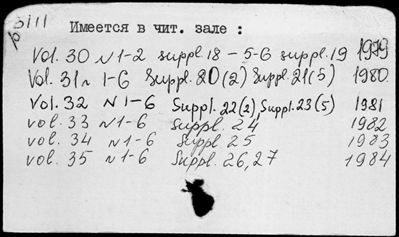 р 3111
Имеется в чит. зале :
Vol. 30 N 1-2 suppl. 18 - 5-6 suppl. 19 1979
Vol. 31 N 1-6 Suppl. 20 (2) Suppl. 21 (5) 1980
Vol. 32 N 1-6 Suppl. 22 (2), Suppl. 23 (5) 1981
vol. 33 N 1-6 Suppl. 24 1982
vol. 34 N 1-6 Suppl 25 1983
vol. 35 N 1-6 Suppl. 26, 27 1984